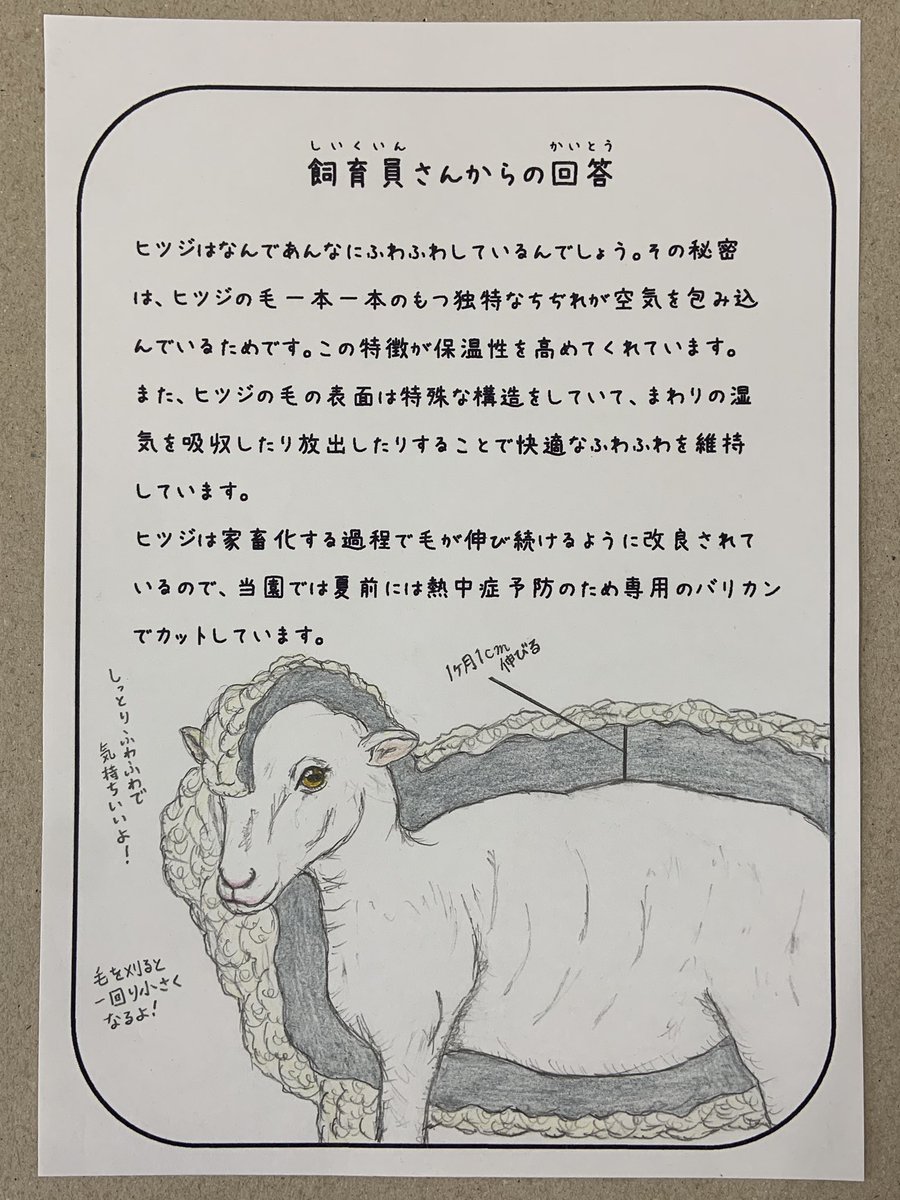 しいくいん かいとう
飼育員さんからの回答
ヒツジはなんであんなにふわふわしているんでしょう。その秘密
は、ヒツジの毛一本一本のもつ独特なちぢれが空気を包み込
んでいるためです。この特徴が保温性を高めてくれています。
また、ヒツジの毛の表面は特殊な構造をしていて、まわりの湿
気を吸収したり放出したりすることで快適なふわふわを維持
しています。
ヒツジは家畜化する過程で毛が伸び続けるように改良されて
いるので、当園では夏前には熱中症予防のため専用のバリカン
でカットしています。
1ヶ月1cm
伸びる
しっとりふわふわで
気持ちいいよ!
毛を刈ると
一回り小さく
なるよ!